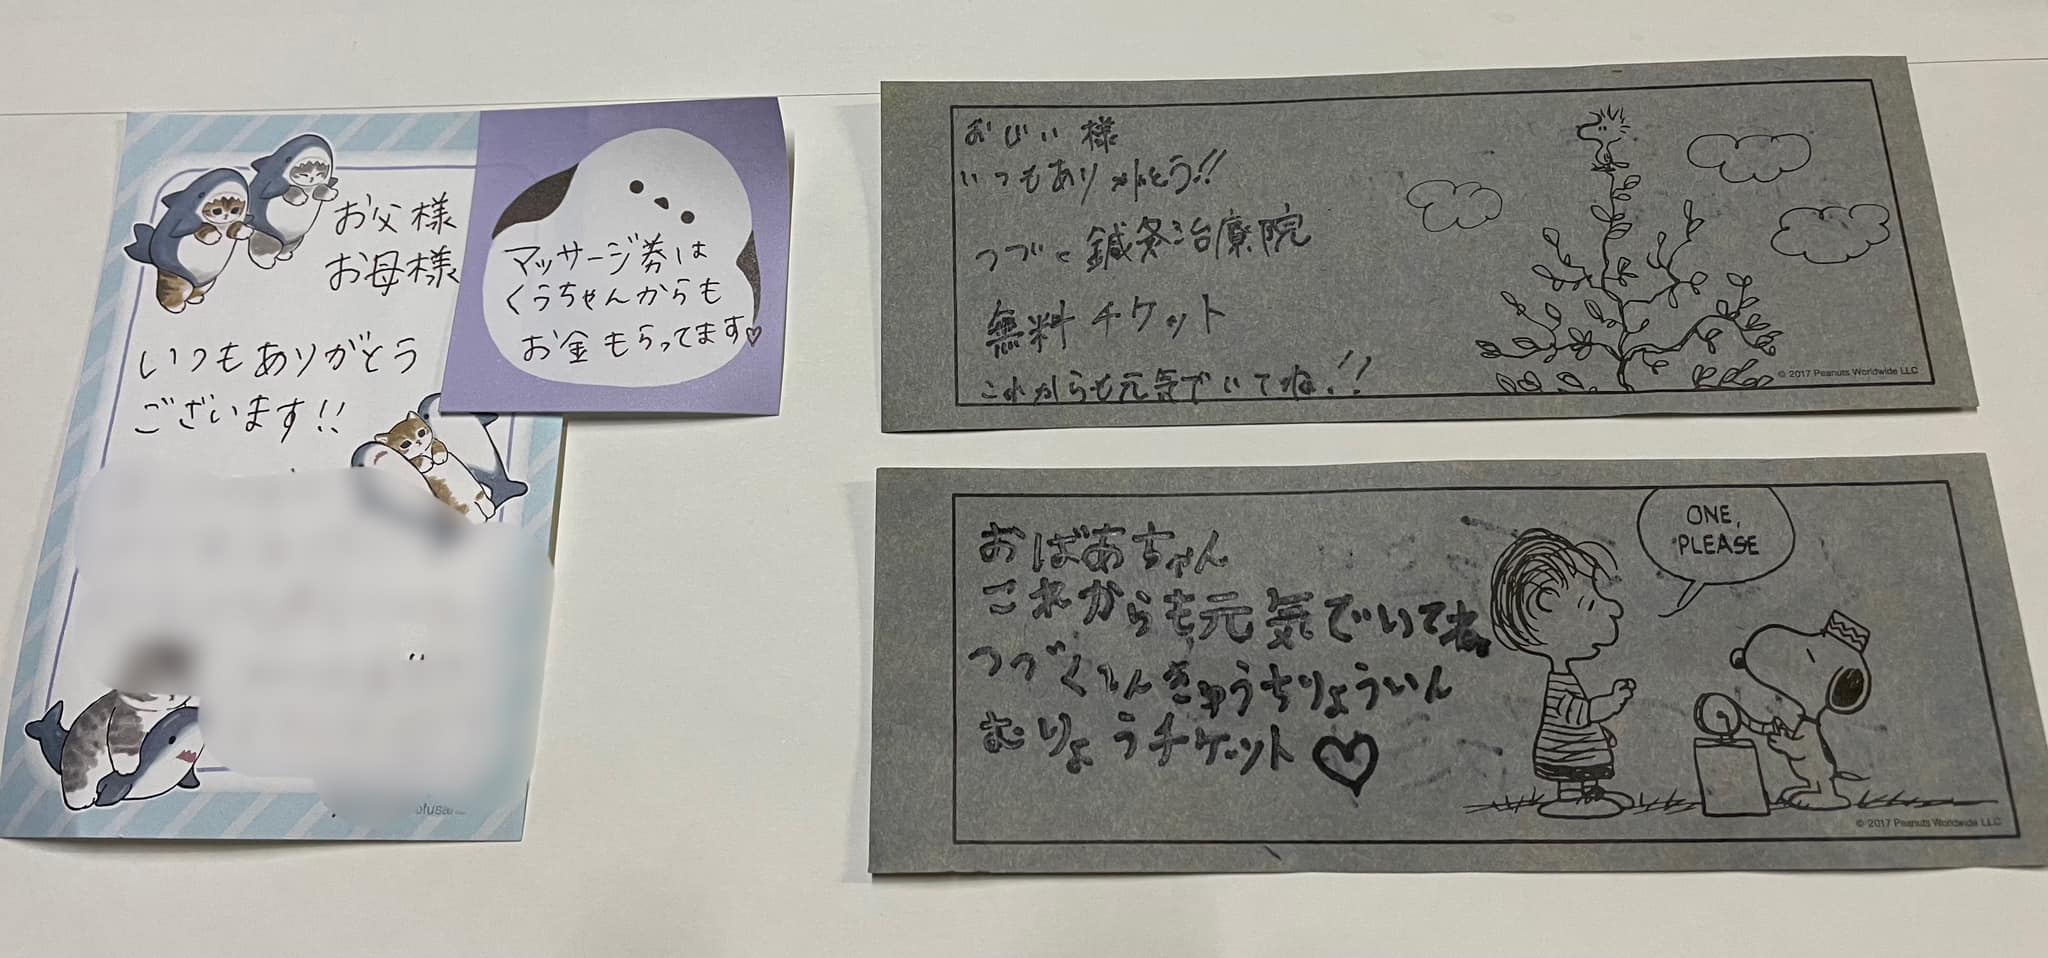 お父様
お母様
いつもありがとう
ございます!!
マッサージ券は
くうちゃんからも
お金もらってます♡
おじい様
いつもありがとう!!
つづく鍼灸治療院
無料チケット
これからも元気でいてね!!
© 2017 Peanuts Worldwide LLC
おばあちゃん
これからも元気でいてね
つづくしんきゅうちりょういん
むりょうチケット♡
ONE,
PLEASE
© 2017 Peanuts Worldwide LLC